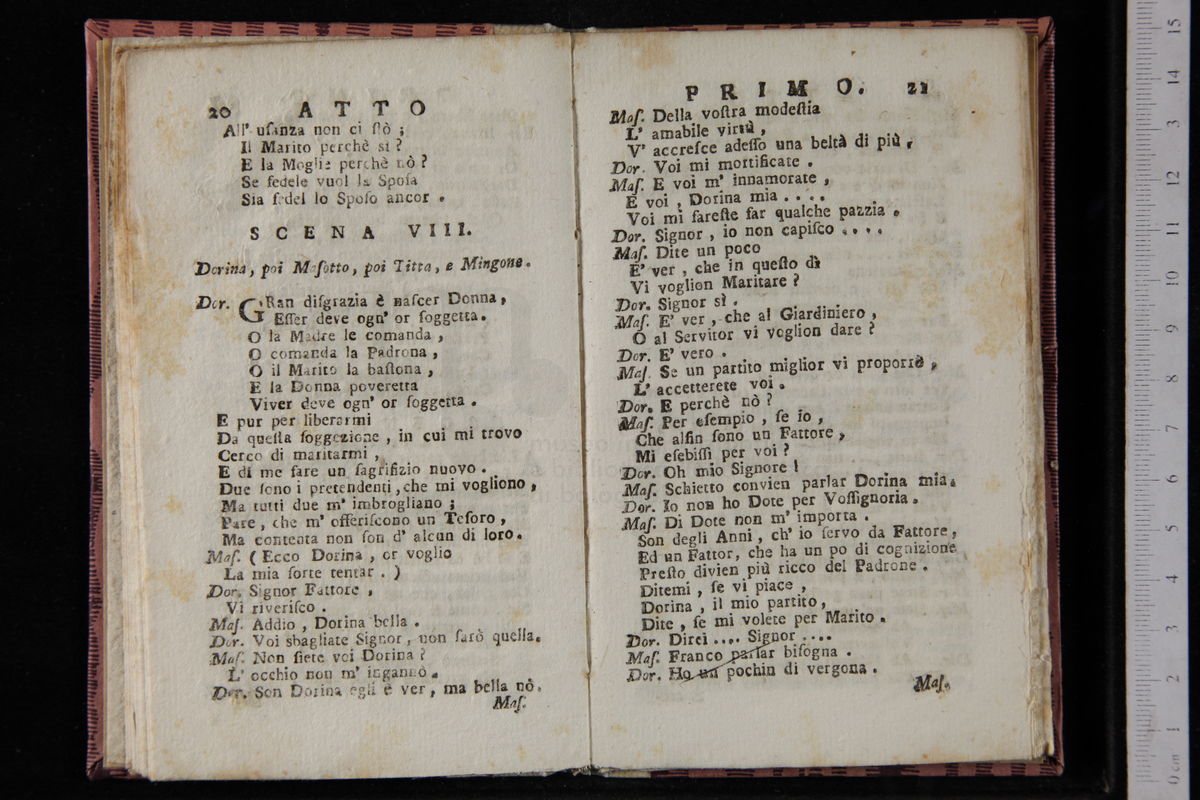 20 ATTO
All' uſanza non ci ſtò ;
Il Marito perchè sì ?
E la Moglie perchè nò ?
Se fedele vuol la Spoſa
Sia fedel lo Spoſo ancor .
SCENA VIII.
Dorina, poi Maſotto, poi Titta, e Mingone.
Dor. GRan diſgrazia è naſcer Donna,
Eſſer deve ogn' or ſoggetta.
O la Madre le comanda ,
O comanda la Padrona ,
O il Marito la baſtona ,
E la Donna poveretta
Viver deve ogn' or ſoggetta .
E pur per liberarmi
Da queſta ſoggezione , in cui mi trovo
Cerco di maritarmi ,
E di me fare un ſagrifizio nuovo .
Due ſono i pretendenti, che mi vogliono ,
Ma tutti due m' imbrogliano ;
Pare , che m' offeriſcono un Teſoro ,
Ma contenta non ſon d' alcun di loro.
Maſ. ( Ecco Dorina , or voglio
La mia ſorte tentar . )
Dor. Signor Fattore ,
Vi riveriſco .
Maſ. Addio , Dorina bella .
Dor. Voi sbagliate Signor , non ſarò quella.
Maſ. Non ſiete voi Dorina ?
L' occhio non m' ingannò .
Dor. Son Dorina egli è ver , ma bella nò.
Maſ.
PRIMO. 21
Maſ. Della voſtra modeſtia
L' amabile virtù ,
V' accreſce adeſſo una beltà di più .
Dor. Voi mi mortificate .
Maſ. E voi m' innamorate ,
E voi , Dorina mia . . . .
Voi mi fareſte far qualche pazzia .
Dor. Signor , io non capiſco . . . .
Maſ. Dite un poco
E' ver , che in queſto dì
Vi voglion Maritare ?
Dor. Signor sì .
Maſ. E' ver , che al Giardiniero ,
O al Servitor vi voglion dare ?
Dor. E' vero .
Maſ. Se un partito miglior vi proporrè ,
L' accetterete voi .
Dor. E perchè nò ?
Maſ. Per eſempio , ſe io ,
Che alfin ſono un Fattore ,
Mi eſebiſſi per voi ?
Dor. Oh mio Signore !
Maſ. Schietto convien parlar Dorina mia.
Dor. Io non ho Dote per Voſſignoria .
Maſ. Di Dote non m' importa .
Son degli Anni , ch' io ſervo da Fattore,
Ed un Fattor, che ha un po di cognizione
Preſto divien più ricco del Padrone .
Ditemi , ſe vi piace ,
Dorina , il mio partito,
Dite , ſe mi volete per Marito .
Dor. Direi .... Signor ....
Maſ. Franco parlar biſogna .
Dor. Ho un pochin di vergona .
Maſ.
museo
biblio
di bolo
15
14
13
12
11
10
9
8
7
6
5
4
3
2
1
0 cm